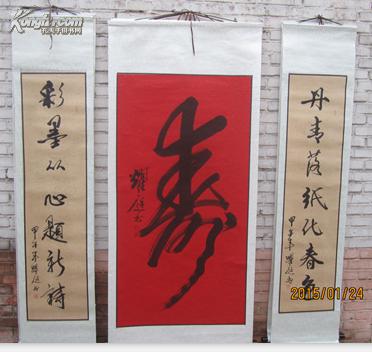 Kongfz.com
孔夫子旧书网
丹青落纸化春色
甲午年 耀庭书
寿
耀庭书
彩墨从心题新诗
甲午年 耀庭书
2015/01/24